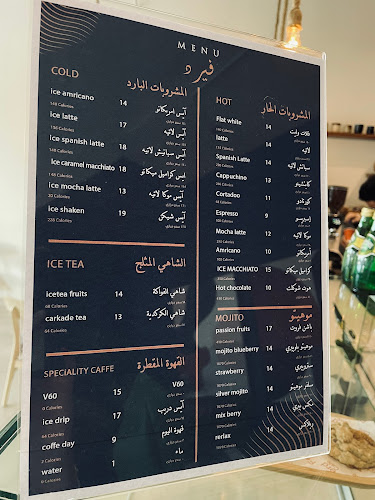 MENU
فيرد
COLD المشروبات البارد
ice amricano 14 آيس امريكانو
148 Calories
ice latte 17 آيس لاتيه
136 Calories
ice spanish latte 18 آيس سبانيش لاتيه
148 Calories
ice caramel macchiato 18
168 Calories
ice mocha latte 13 آيس موكا لاتيه
20 Calories
ice shaken 19 آيس شيكن
228 Calories
ICE TEA الشاهي المثلج
icetea fruits 14 شاهي الفواكة
68 Calories
carkade tea 13 شاهي الكركدية
64 Calories
SPECIALITY CAFFE القهوة المقطرة
V60 15 V60
0 Calories
ice drip 17 آيس دريب
64 Calories
coffe day 9 قهوة اليوم
water 1 ماء
0 Calories
HOT المشروبات الحار
Flat white 14 فلات وايت
latte 14 لاتيه
Spanish Latte 14 سبانش لاتيه
Cappuchino 13 كابتشينو
Cortadoo 11 كورتادو
Espresso 9 اسبريسو
Mocha latte 12 موكا لاتيه
Amricano 10 امريكانو
ICE MACCHIATO 15 كراميل ميكاتو
Hot chocolate 11 هوت شوكلت
MOJITO موهيتو
passion fruits 17 باشن فروت
mojito blueberry 14 موهيتو بلوبيري
strawberry 14 ستروبيري
silver mojito 14 سلفر موهيتو
mix berry 14 مكس بيري
rerlax 14 ريلاكس